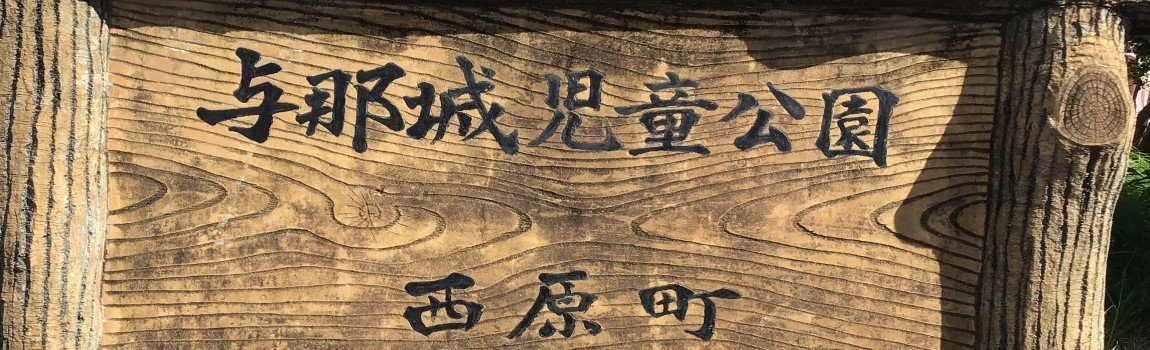 与那城児童公園
西原町